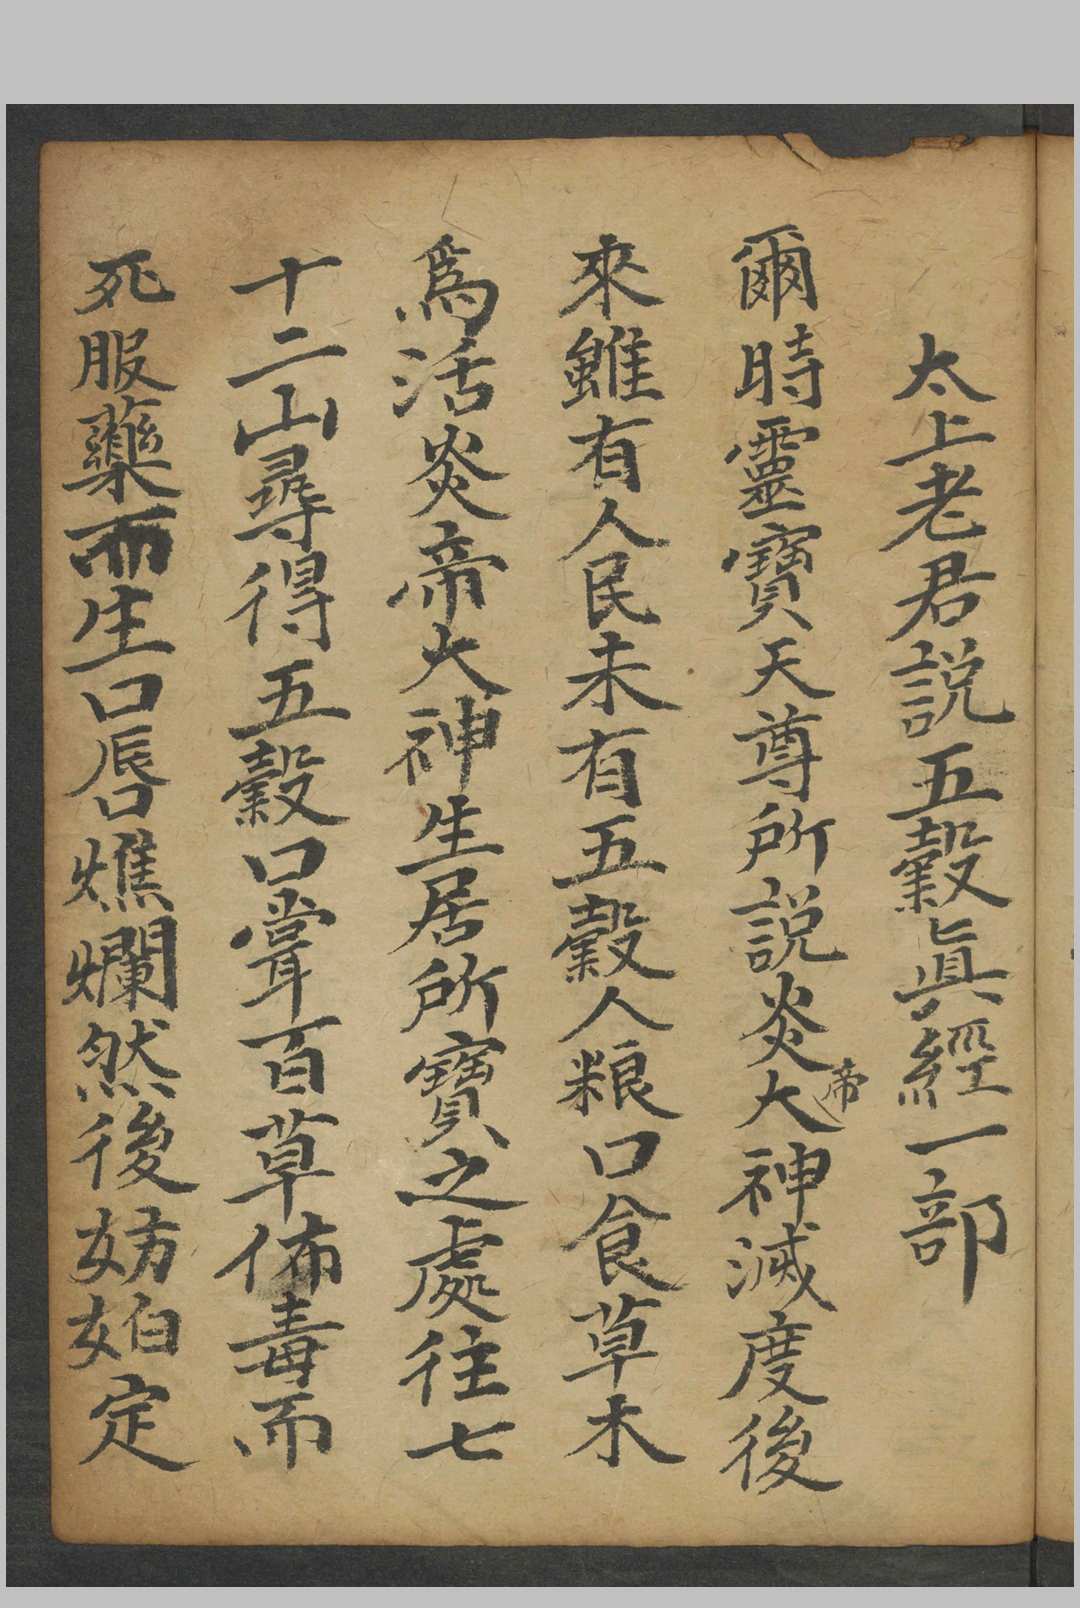 太上老君説五糓眞經一部
爾時靈寶天尊所説炎帝大神滅度後
來雖有人民未有五糓人粮口食草木
爲活炎帝大神生居所寶之處往七
十二山尋得五糓口甞百草佈毒而
死服藥而生口唇燋爛然後妨妲定